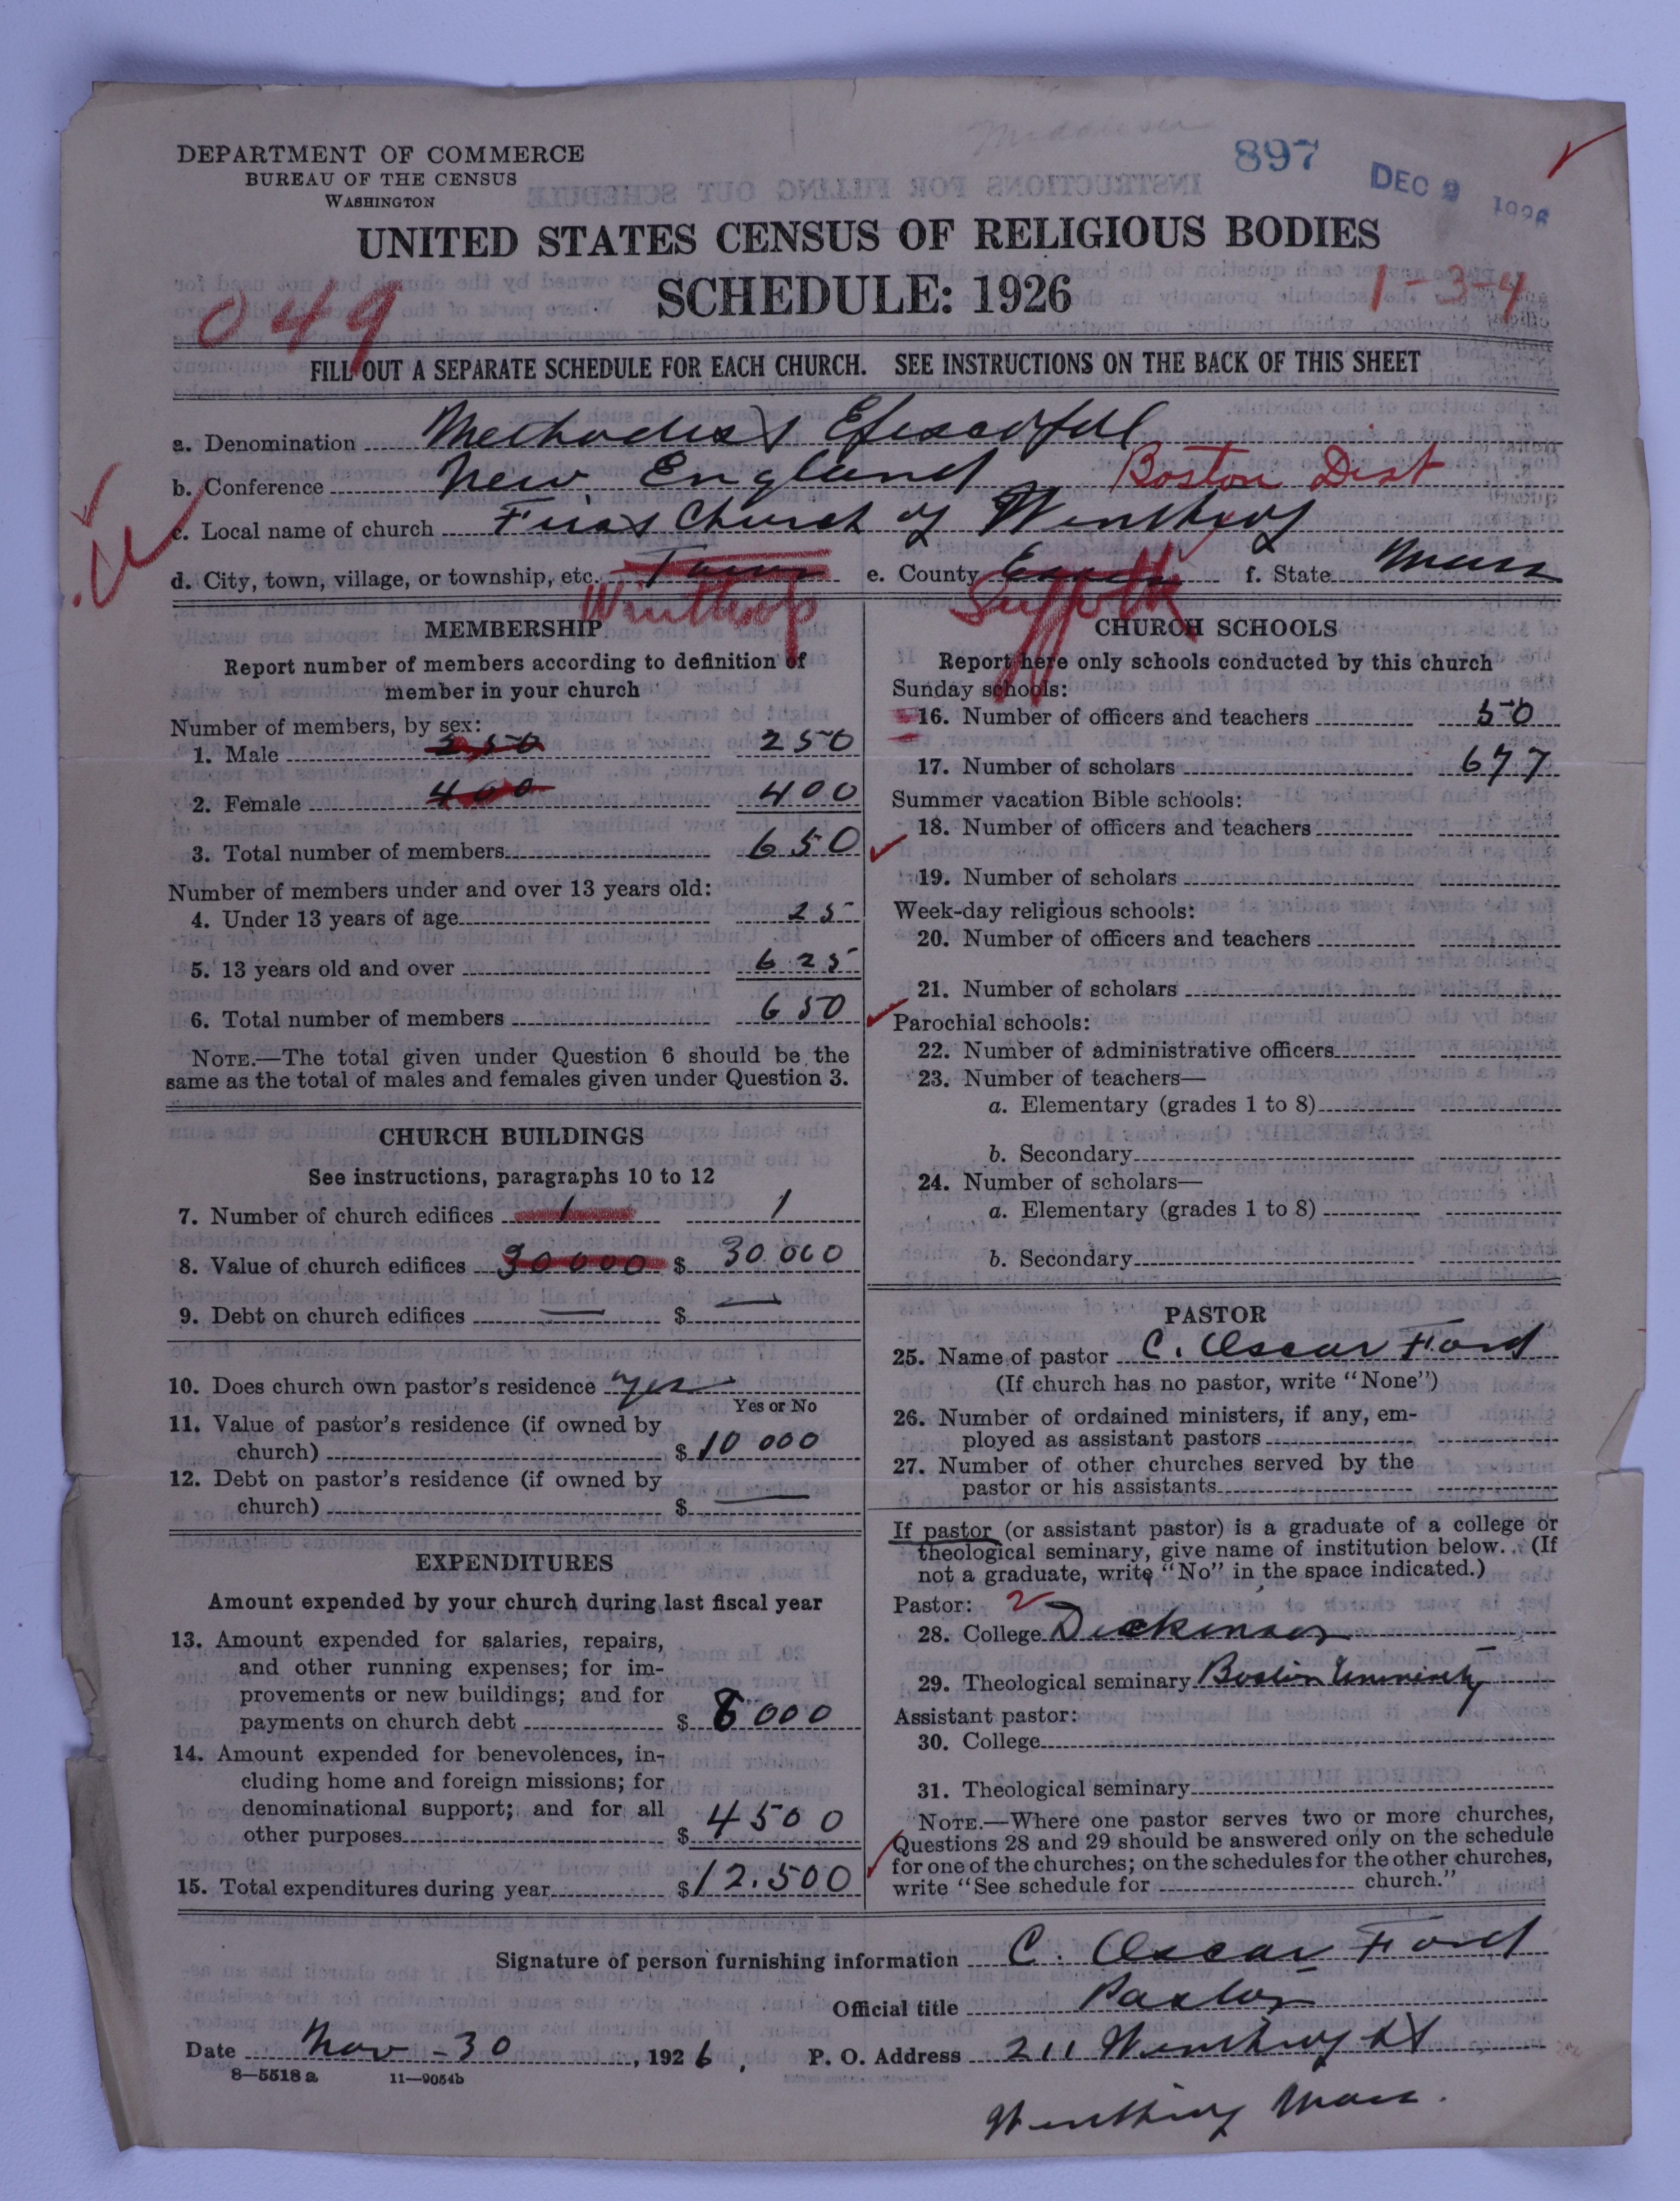 897
DEC 9 1926
DEPARTMENT OF COMMERCE
BUREAU OF THE CENSUS
WASHINGTON
UNITED STATES CENSUS OF RELIGIOUS BODIES
SCHEDULE: 1926
049
1-3-4
FILL OUT A SEPARATE SCHEDULE FOR EACH CHURCH. SEE INSTRUCTIONS ON THE BACK OF THIS SHEET
a. Denomination Methodist Episcopal
b. Conference New England Boston Dist
c. Local name of church First Church of Winthrop
d. City, town, village, or township, etc. Town e. County Essex f. State Mass
Winthrop Suffolk
MEMBERSHIP
Report number of members according to definition of
member in your church
Number of members, by sex:
1. Male 250 250
2. Female 400 400
3. Total number of members 650
Number of members under and over 13 years old:
4. Under 13 years of age 25
5. 13 years old and over 625
6. Total number of members 650
NOTE.—The total given under Question 6 should be the
same as the total of males and females given under Question 3.
CHURCH BUILDINGS
See instructions, paragraphs 10 to 12
7. Number of church edifices 1 1
8. Value of church edifices 30000 $ 30.000
9. Debt on church edifices — $ —
10. Does church own pastor's residence Yes
Yes or No
11. Value of pastor's residence (if owned by
church) $ 10 000
12. Debt on pastor's residence (if owned by
church) $ —
EXPENDITURES
Amount expended by your church during last fiscal year
13. Amount expended for salaries, repairs,
and other running expenses; for im-
provements or new buildings; and for
payments on church debt $ 8000
14. Amount expended for benevolences, in-
cluding home and foreign missions; for
denominational support; and for all
other purposes $ 4500
15. Total expenditures during year $ 12.500
CHURCH SCHOOLS
Report here only schools conducted by this church
Sunday schools:
16. Number of officers and teachers 50
17. Number of scholars 677
Summer vacation Bible schools:
18. Number of officers and teachers
19. Number of scholars
Week-day religious schools:
20. Number of officers and teachers
21. Number of scholars
Parochial schools:
22. Number of administrative officers
23. Number of teachers—
a. Elementary (grades 1 to 8)
b. Secondary
24. Number of scholars—
a. Elementary (grades 1 to 8)
b. Secondary
PASTOR
25. Name of pastor C. Oscar Ford
(If church has no pastor, write "None")
26. Number of ordained ministers, if any, em-
ployed as assistant pastors
27. Number of other churches served by the
pastor or his assistants
If pastor (or assistant pastor) is a graduate of a college or
theological seminary, give name of institution below. (If
not a graduate, write "No" in the space indicated.)
Pastor: 2
28. College Dickinson
29. Theological seminary Boston University
Assistant pastor:
30. College
31. Theological seminary
NOTE.—Where one pastor serves two or more churches,
Questions 28 and 29 should be answered only on the schedule
for one of the churches; on the schedules for the other churches,
write "See schedule for church."
Signature of person furnishing information C. Oscar Ford
Official title Pastor
Date Nov - 30, 1926, P. O. Address 211 Winthrop St
8—5518 a 11—9054b
Winthrop Mass.